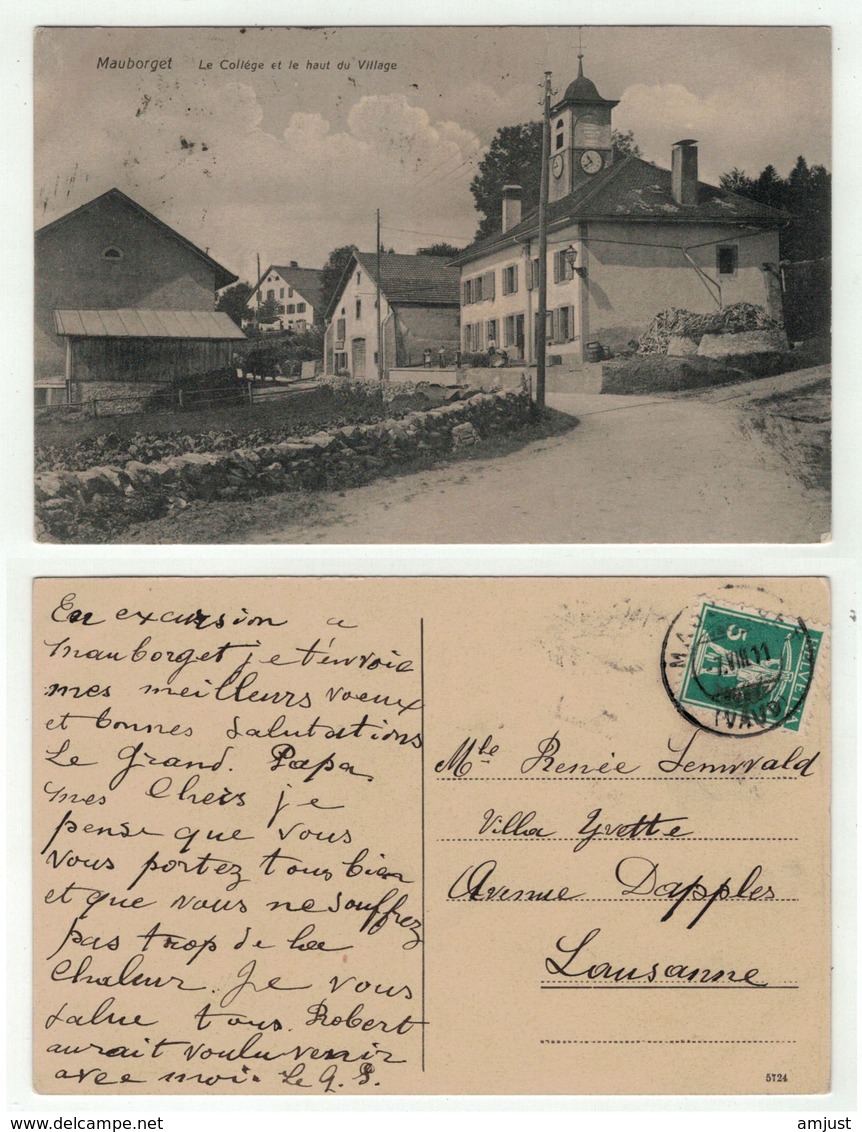 Mauborget Le Collége et le haut du Village
En excursion a
Mauborget je t'envoie
mes meilleurs voeux
et bonnes salutations
Le Grand. Papa.
mes Chers je
pense que vous
vous portez tous bien
et que vous ne souffrez
pas trop de la
Chaleur. Je vous
salue tous. Robert
aurait voulu venir
avec moi. Le G. P.
5
HELVETIA
7.VIII.11
(VAUD)
Mlle Renée
Villa Yvette
Avenue Dapples
Lausanne
5724
amjust